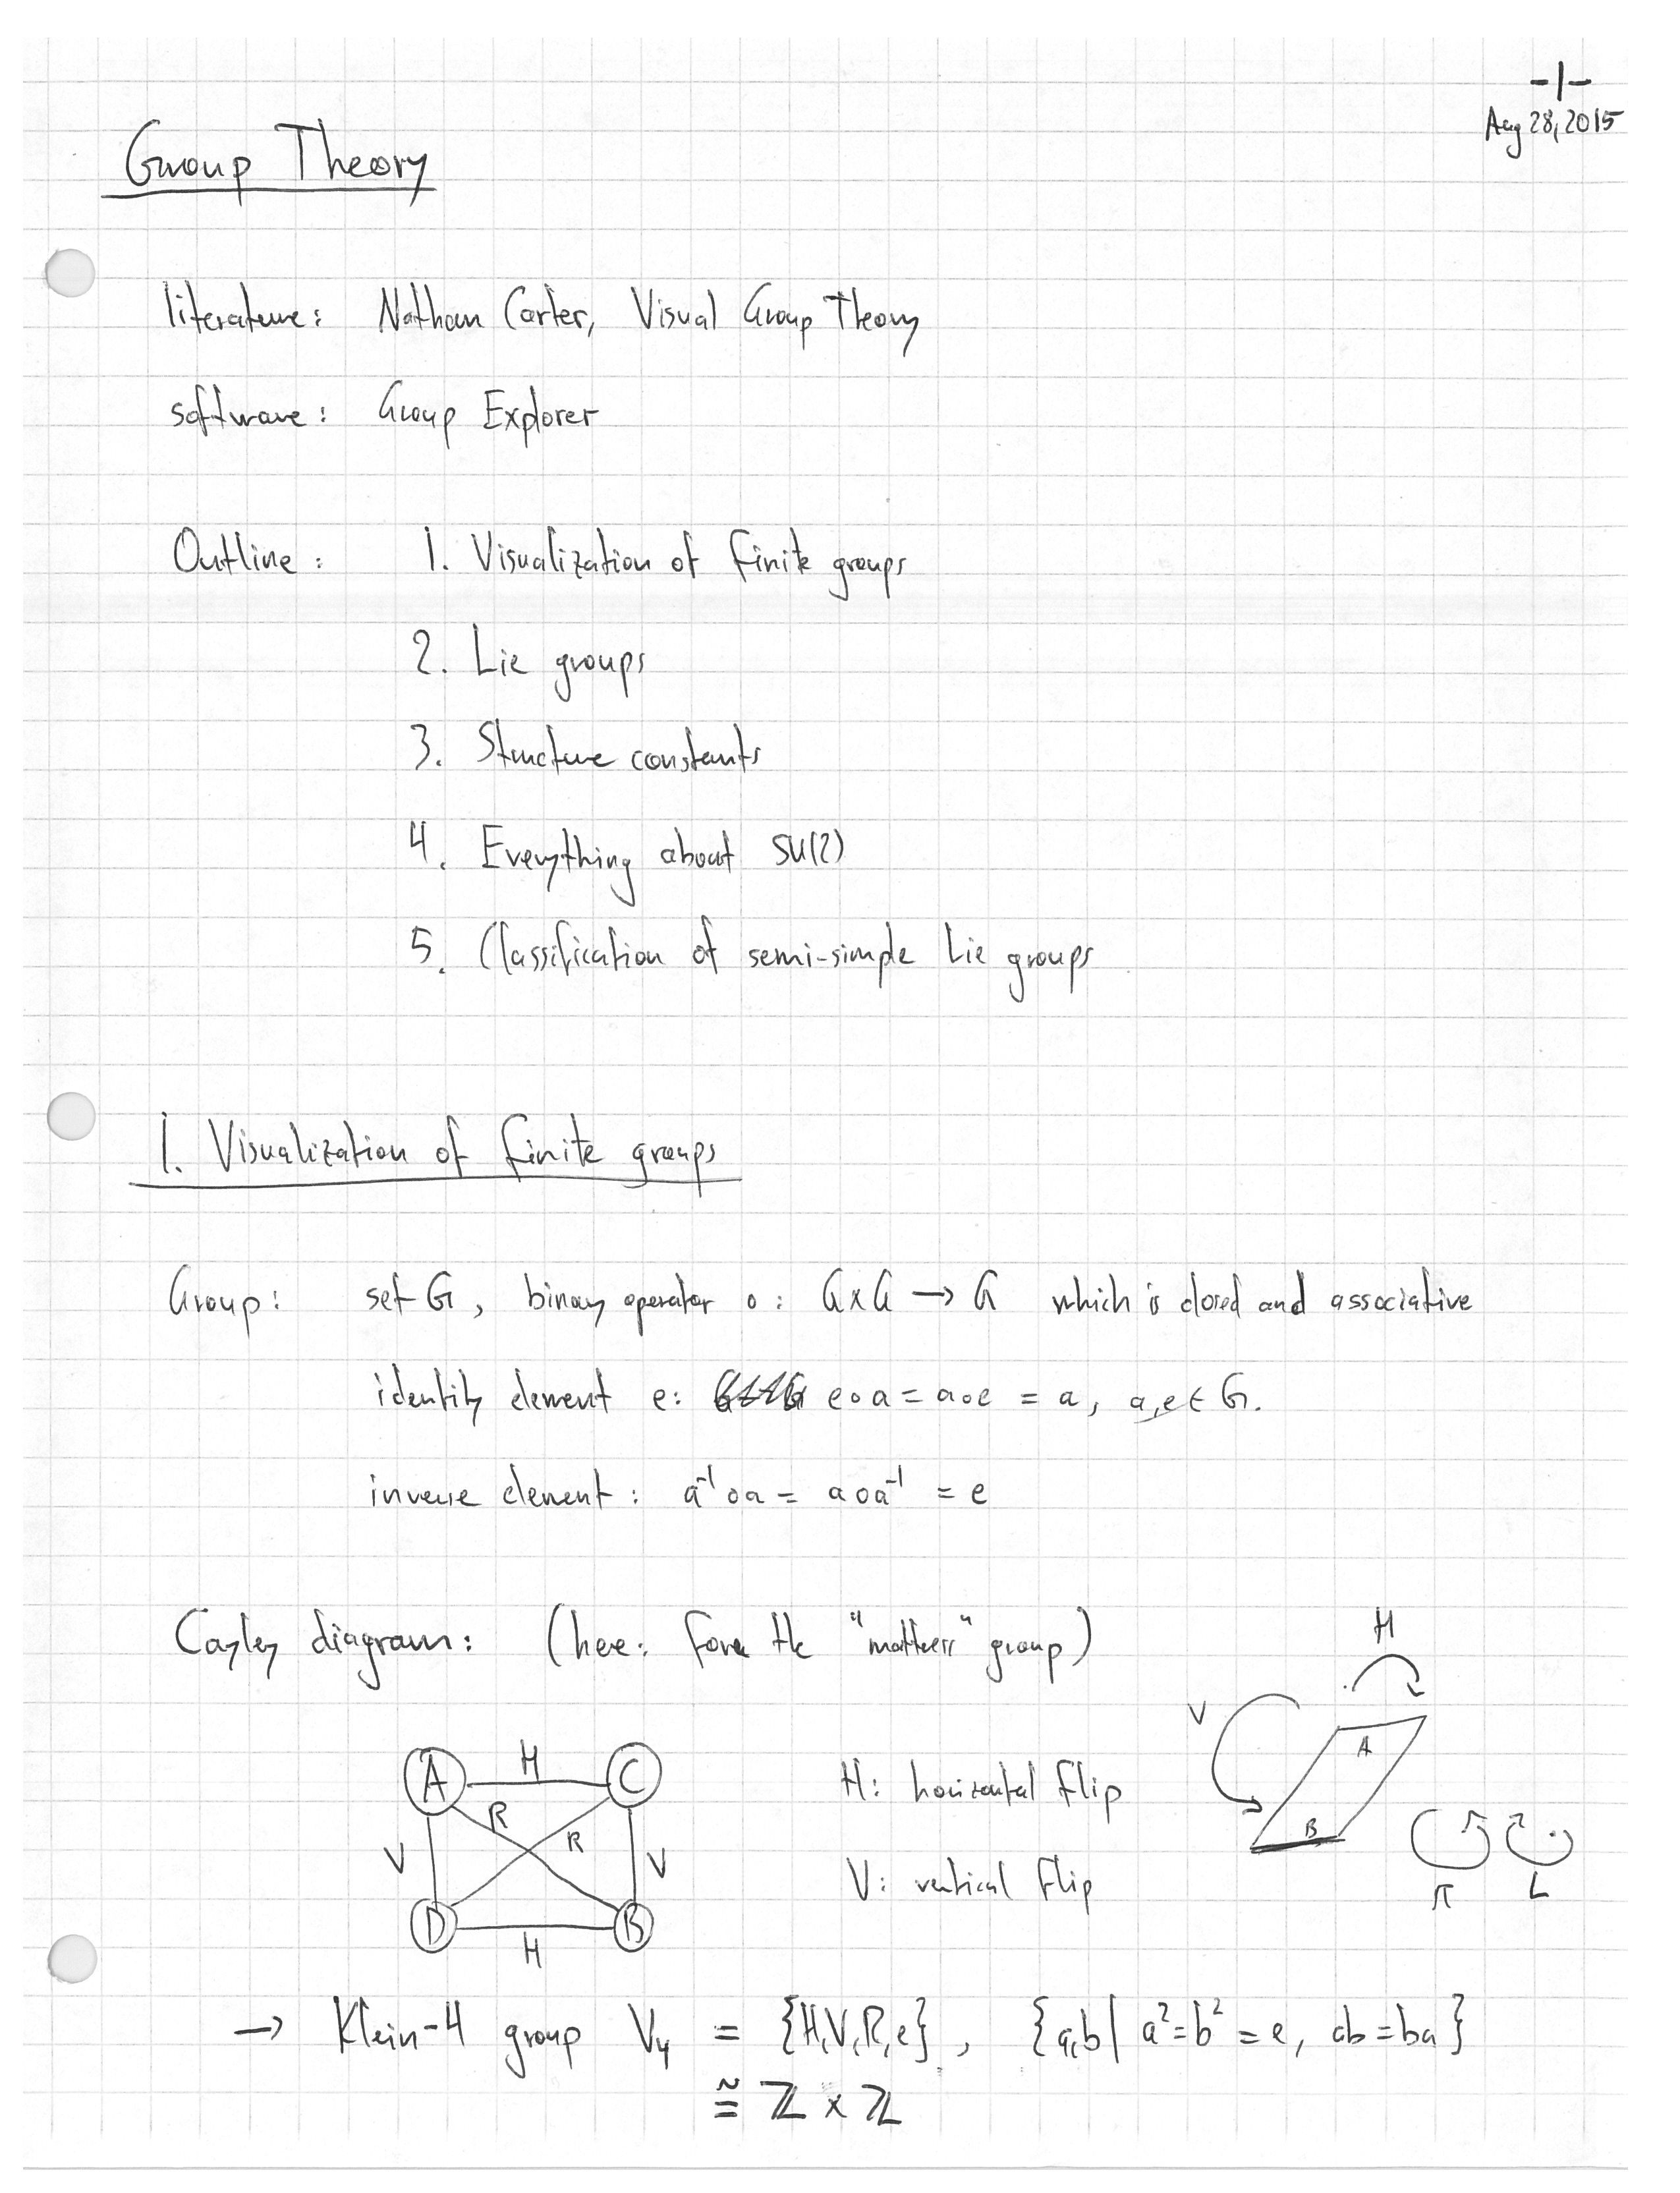 -1-
Aug 28, 2015
Group Theory
literature: Nathan Carter, Visual Group Theory
software: Group Explorer
Outline: 1. Visualization of finite groups
2. Lie groups
3. Structure constants
4. Everything about SU(2)
5. Classification of semi-simple Lie groups
1. Visualization of finite groups
Group: set G, binary operator ∘: G×G → G which is closed and associative
identity element e: e∘a = a∘e = a, a,e ∈ G.
inverse element: a⁻¹∘a = a∘a⁻¹ = e
Cayley diagram: (here: the "mattress" group)
H
V
A
B
A H C
R R
V V
D H B
H: horizontal flip
V: vertical flip
L
→ Klein-4 group V₄ = {H,V,R,e}, {a,b| a²=b²=e, ab=ba}
≅ ℤ × ℤ